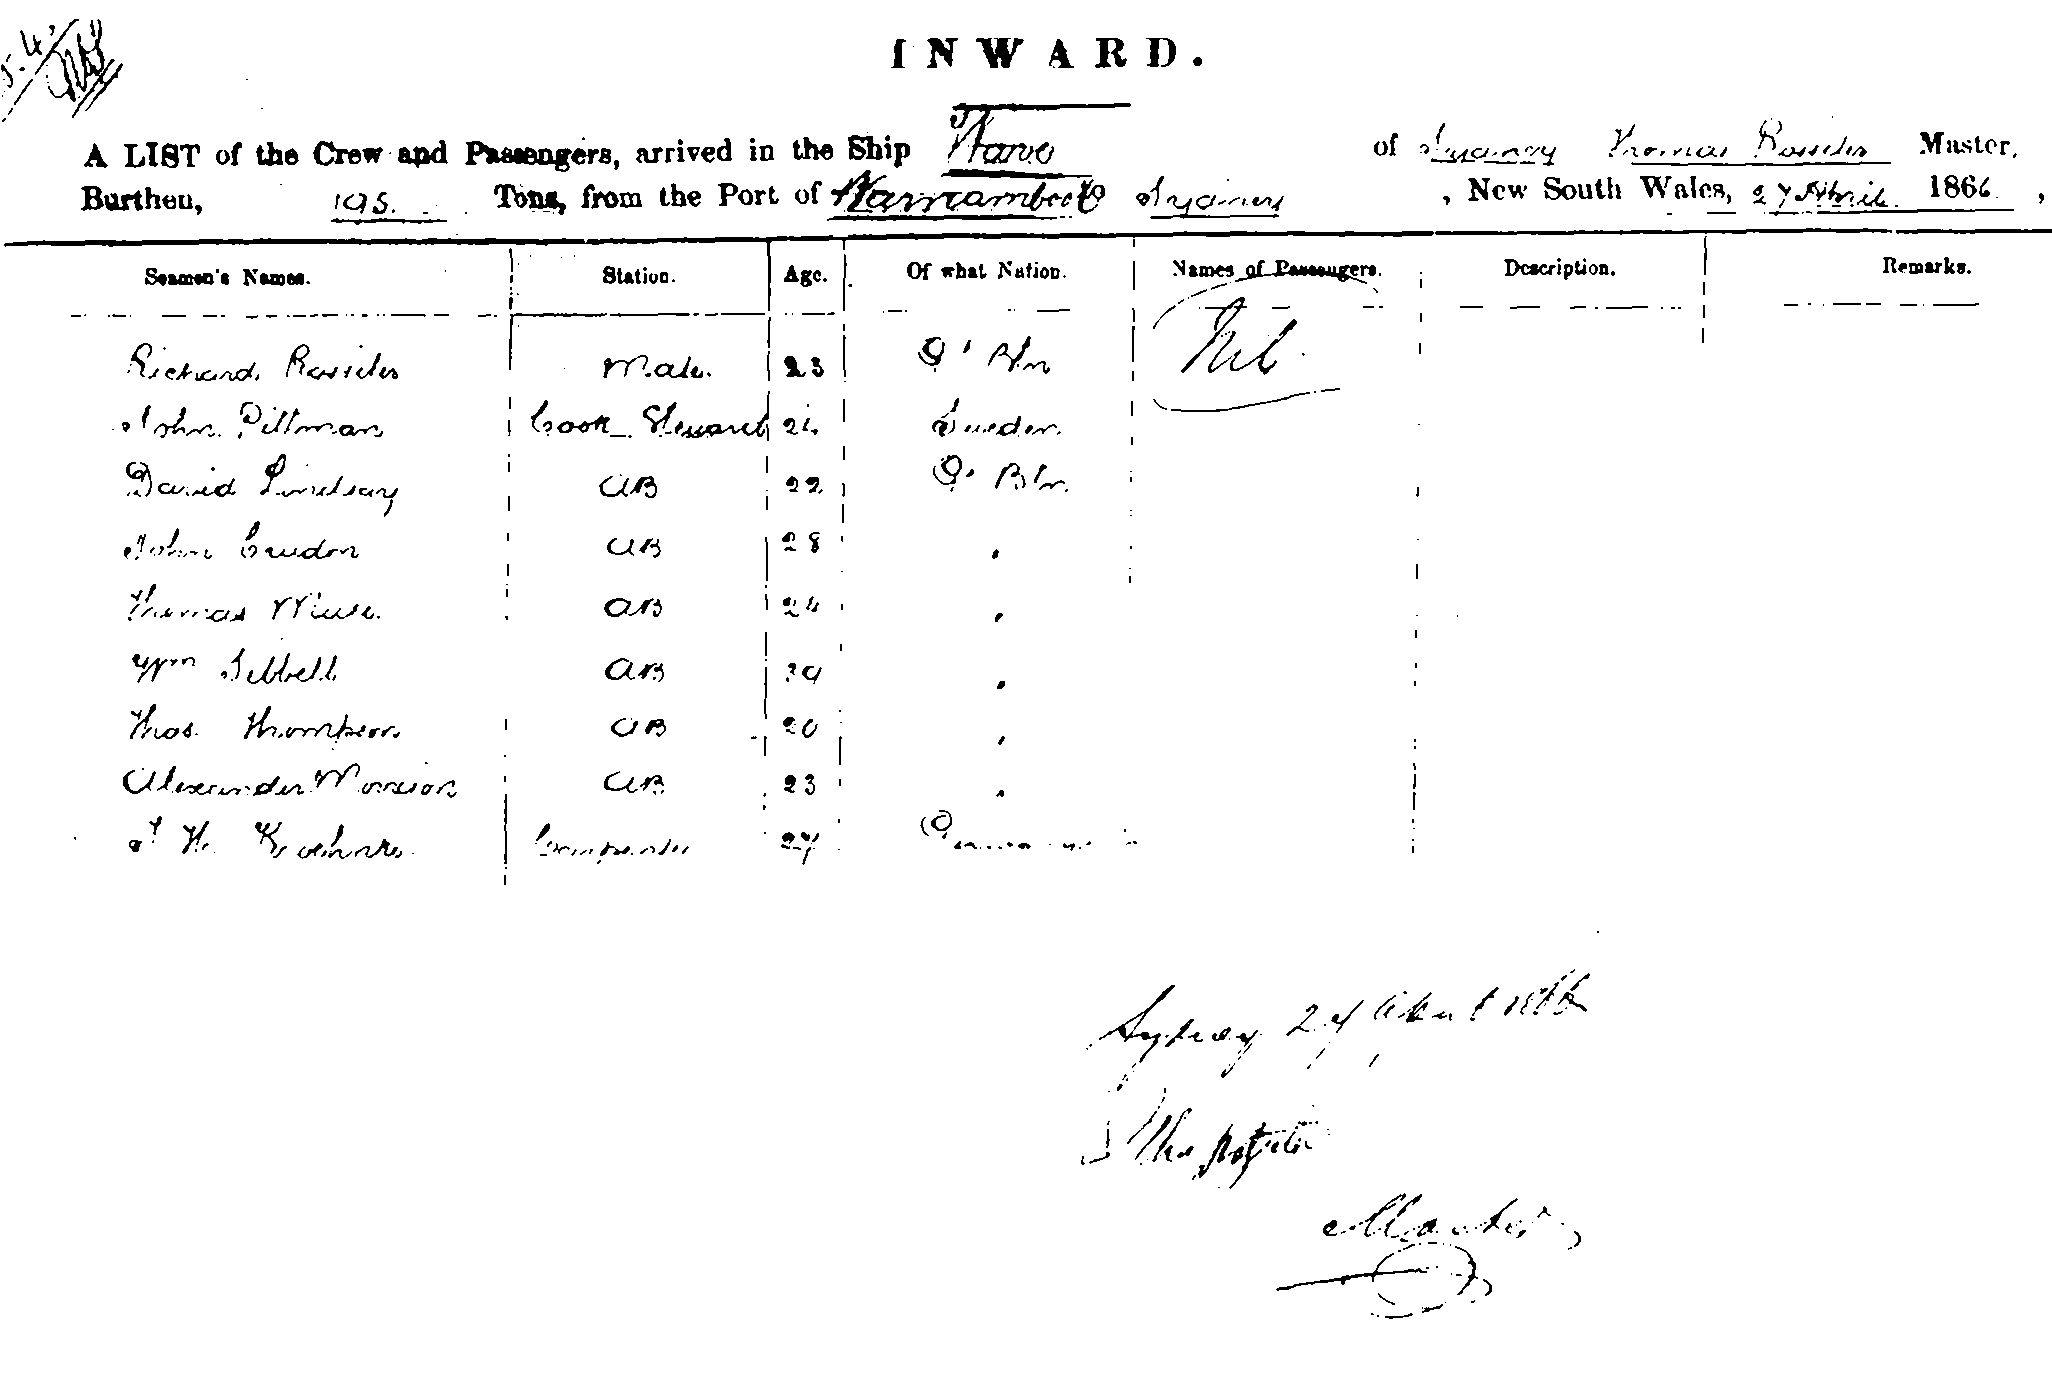 INWARD.
A LIST of the Crew and Passengers, arrived in the Ship Wave of Sydney Thomas Rossiter Master,
Burthen, 195. Tons, from the Port of Warrnambool to Sydney, New South Wales, 27 April 1866,
Seamen's Names. Station. Age. Of what Nation. Names of Passengers. Description. Remarks.
Richard Rossiter Mate. 23 Gt Btn Nil
John Pittman Cook Steward 24 Sweden
David Lindsay AB 22 Gt Btn
John AB 28 "
Thomas AB 24 "
Wm Tibbell AB "
Thos. Thompson AB 20 "
Alexander Morrison AB 23 "
Carpenter 27 Germany
Sydney 27 April 1866
Thos Rossiter
Master